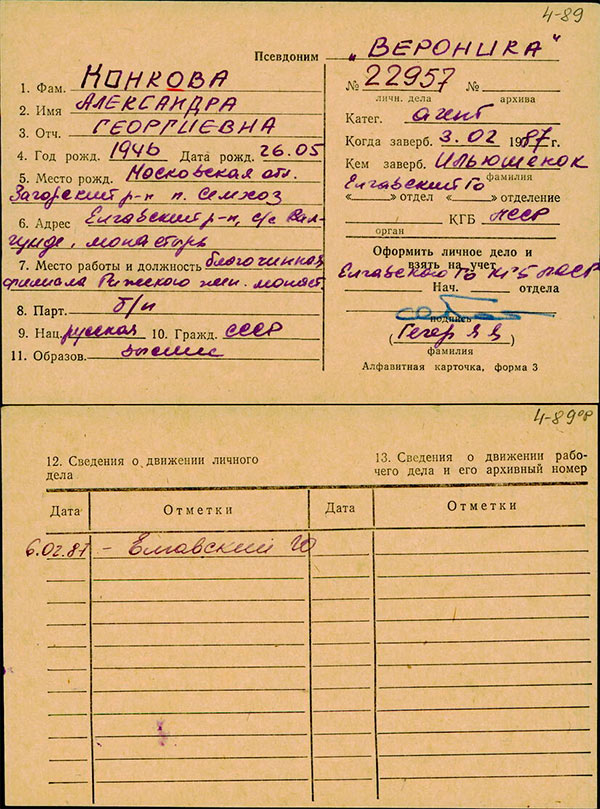 4-89
Псевдоним „ВЕРОНИКА"
1. Фам. КОНКОВА
2. Имя АЛЕКСАНДРА
3. Отч. ГЕОРГИЕВНА
4. Год рожд. 1946 Дата рожд. 26.05
5. Место рожд. Московская обл.
Загорский р-н п. Семхоз
6. Адрес Елгавский р-н, с/с Вал-
гунде, монастырь
7. Место работы и должность благочинная
филиала Рижского жен. монаст.
8. Парт. б/п
9. Нац. русская 10. Гражд. СССР
11. Образов. высшее
№ 22957 №
личн. дела архива
Катег. агент
Когда заверб. 3.02 1987 г.
Кем заверб. Ильюшенок
фамилия
Елгавский ГО
«» отдел «» отделение
КГБ ЛССР
орган
Оформить личное дело и
взять на учет
Елгавский ГО КГБ ЛССР
Нач. отдела
подпись
(Гегер Я Я)
фамилия
Алфавитная карточка, форма 3
4-89 об
12. Сведения о движении личного
дела
13. Сведения о движении рабо-
чего дела и его архивный номер
Дата Отметки Дата Отметки
6.02.87 - Елгавский ГО